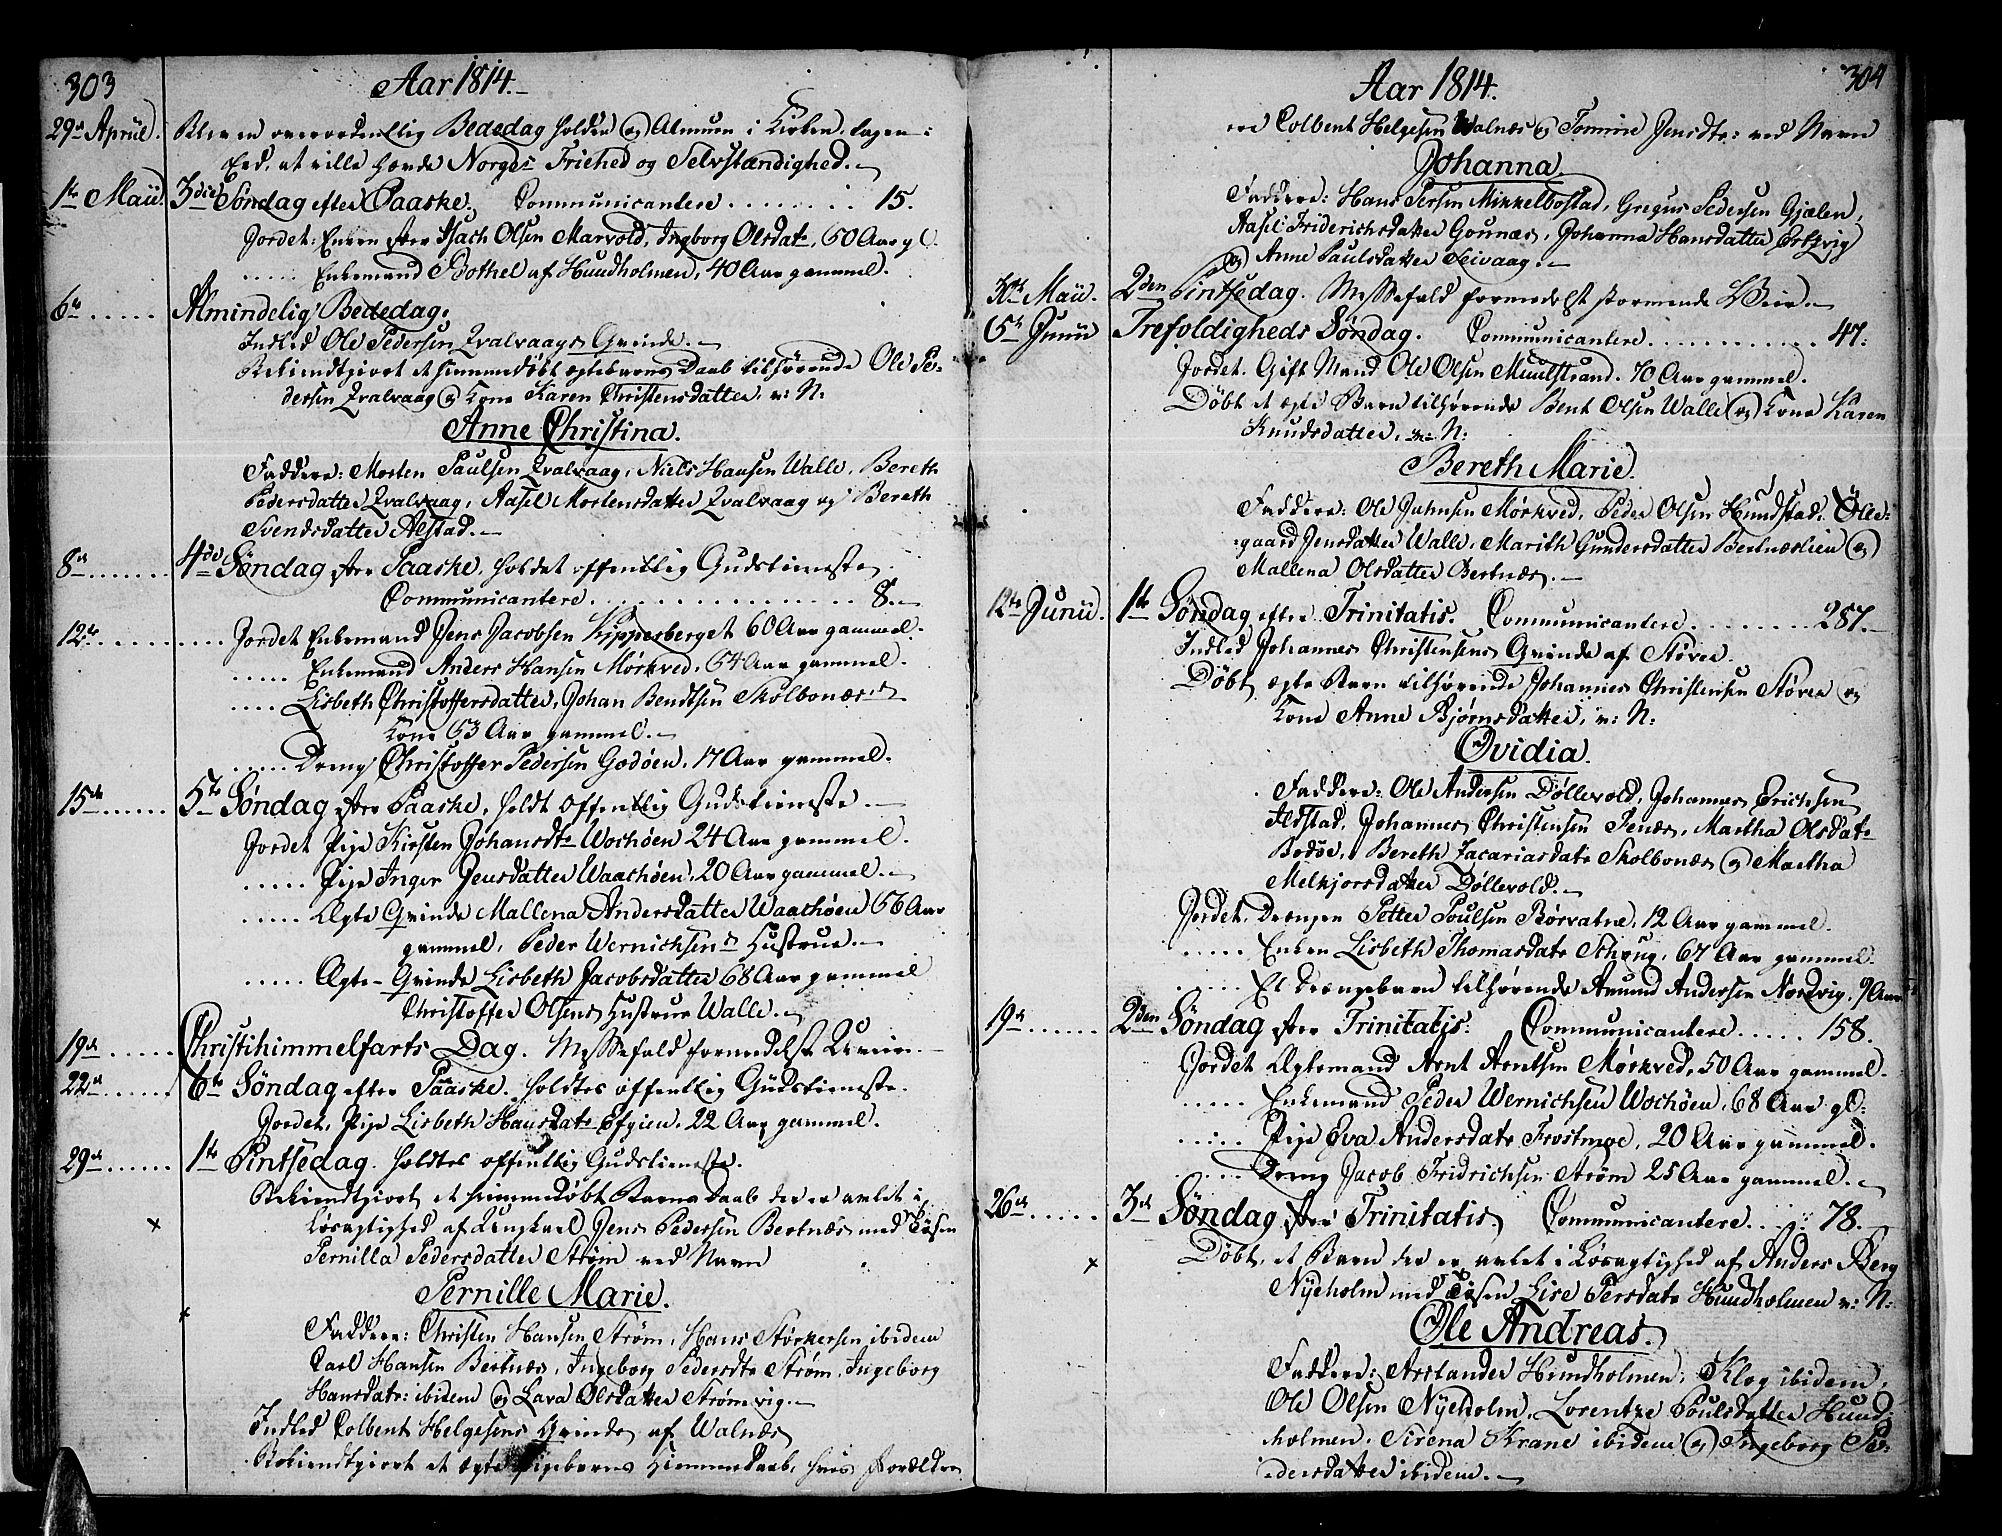 303
Aar 1814.
29de Apriil. Blev en overordentlig Bededag holden og Almuen i Kirken tagen i
Eed, at ville hævde Norges Friehed og Selvstændighed.
1te Maii. 3die Søndag efter Paaske. Communicantere ........ 15.
Jordet: Enken efter Isach Olsen Marvold, Ingeborg Olsdatr, 60 Aar gl.
..... Enkemand Bothel af Hundholmen, 40 Aar gammel.
6te ..... Almindelig Bededag.
Indled Ole Pedersen Zvalvaags Qvinde.
Bekiendtgiort et hiemmedøbt ægtebarns Daab tilhørende Ole Pe-
dersen Zvalvaag og Kone Karen Christensdatter, v: N:
Anne Christina.
Faddere: Morten Paulsen Zvalvaag, Niels Hansen Walle, Bereth
Pedersdatter Zvalvaag, Aasel Mortensdatter Zvalvaag og Bereth
Svendsdatter Alstad.
8de ....... 4de Søndag efter Paaske, holdet offentlig Gudstieneste
Communicantere ................ 8.
12te ........ Jordet Enkemand Jens Jacobsen Kipperberget 60 Aar gammel.
..... Enkemand Anders Hansen Mørkved, 64 Aar gammel.
.... Lisbeth Christoffersdatter, Johan Bendtsen Skølbonæs's
Kone 63 Aar gammel.
..... Dreng Christoffer Pedersen Godøen, 17 Aar gammel.
15de ...... 5te Søndag efter Paaske, holdt offentlig Gudstieneste.
Jordet Pige Kirsten Johansdtr Wochøen 24 Aar gammel.
..... Pige Inger Jensdatter Waachøen, 20 Aar gammel.
..... Ægte Qvinde Mallena Andersdatter Waachøen 56 Aar
gammel, Peder Wernichsens Hustrue.
..... Ægte-Qvinde Lisbeth Jacobsdatter 68 Aar gammel
Christoffer Olsens Hustrue Walle.
19de ..... Christihimmelfarts Dag. Messefald formedelst Uveir.
22de ..... 6te Søndag efter Paaske. holdtes offentlig Gudstieneste.
Jordet, Pige Lisbeth Hansdatr 22 Aar gammel.
29de ...... 1te Pintsedag. holdtes offentlig Gudstieneste.
Bekiendtgiort et hiemmedøbt Barns Daab der er avlet i
× Løsagtighed af Ungkarl Jens Pedersen Bertnæs med Tøsen
Pernilla Pedersdatter Strøm ved Navn
Pernille Marie.
Faddere: Christen Hansen Strøm, Hans Størkersen ibidem
Carl Hansen Bertnæs, Ingeborg Pedersdtr Strøm, Ingeborg
Hansdatr: ibidem og Lava Olsdatter Strømvig.
Indled Colbent Helgesens Qvinde af Walnæs
Bekiendtgiort et ægte Pigebarns Hiemmedaab, hvis Forældre
304
Aar 1814.
ere Colbent Helgesen Walnæs og Tomine Jensdtr: ved Navn
Johanna.
Faddere: Hans Persen Mikkelbostad, Gregus Pedersen Gjælen,
Aasel Friderichsdatter Gounæs, Johanna Hansdatter
og Anne Paulsdatter Seivaag.
30te Maii. 2den Pintsedag. Messefald formedelst stormende Veir.
5te Junii Trefoldigheds Søndag. Communicantere ............ 47.
Jordet. Gift Mand Ole Olsen Muulstrand. 70 Aar gammel.
Døbt et ægte Barn tilhørende Bent Olsen Walle og Kone Karen
Knudsdatter, v: N:
Bereth Marie.
Faddere: Ole Jahnsen Mørkved, Peder Olsen Hundstad, Olle-
gaard Jensdatter Walle, Marith Gundersdatter Bertnæslien og
Mallena Olsdatter Bertnæs.
12te Junii. 1te Søndag efter Trinitatis. Communicantere ........ 287.
Indled Johannes Christensens Qvinde af Støver.
Døbt, ægte Barn tilhørende Johannes Christensen Støver og
Kone Anne Bjørnsdatter, v: N:
Ovidia.
Faddere: Ole Andersen Døllevold, Johannes Erichsen
Ildstad, Johannes Christensen Ienæs, Martha Olsdatr
Bodøe, Bereth Zacariasdatr Skolbonæs og Martha
Melkjorsdatter Døllevold.
Jordet, Drengen Petter Poulsen Børvatne, 12 Aar gammel.
..... Enken Lisbeth Thomasdatr 67 Aar gammel.
..... Et Drengebarn tilhørende Amund Andersen Nordvig, 9 Aar
19de ...... 2den Søndag efter Trinitatis. Communicantere ..... 158.
Jordet Ægtemand Arnt Arntsen Mørkved, 50 Aar gammel.
..... Enkemand Peder Wernichsen Wochøen, 68 Aar gl:
..... Pige Eva Andersdatr Frostmoe, 20 Aar gammel.
.... Dreng Jacob Fridrichsen Strøm 25 Aar gammel.
26de ...... 3die Søndag efter Trinitatis. Communicantere ..... 78.
× Døbt, et Barn der er avlet i Løsagtighed af Anders Berg
Nyeholm med Tøsen Lise Persdatr Hundholmen v: N:
Ole Andreas.
Faddere: Hundholmen, Klog ibidem,
Ole Olsen Nyeholm, Lorentze Poulsdatter Hund-
holmen, Sirena Krane ibidem og Ingeborg Pe-
dersdatter ibidem.